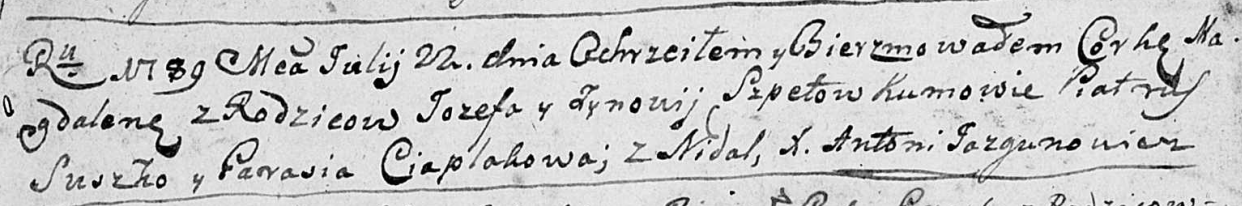 Ru 1789 Mca Julij 22. dnia Ochrzciłem y Bierzmowałem Corkę Ma.
gdalenę z Rodzicow Jozefa y Zynowij Szpetow Kumowie Piatruś
Suszko y Parasia Ciaplakowa; z Nidal, X. Antoni Jazgunowicz